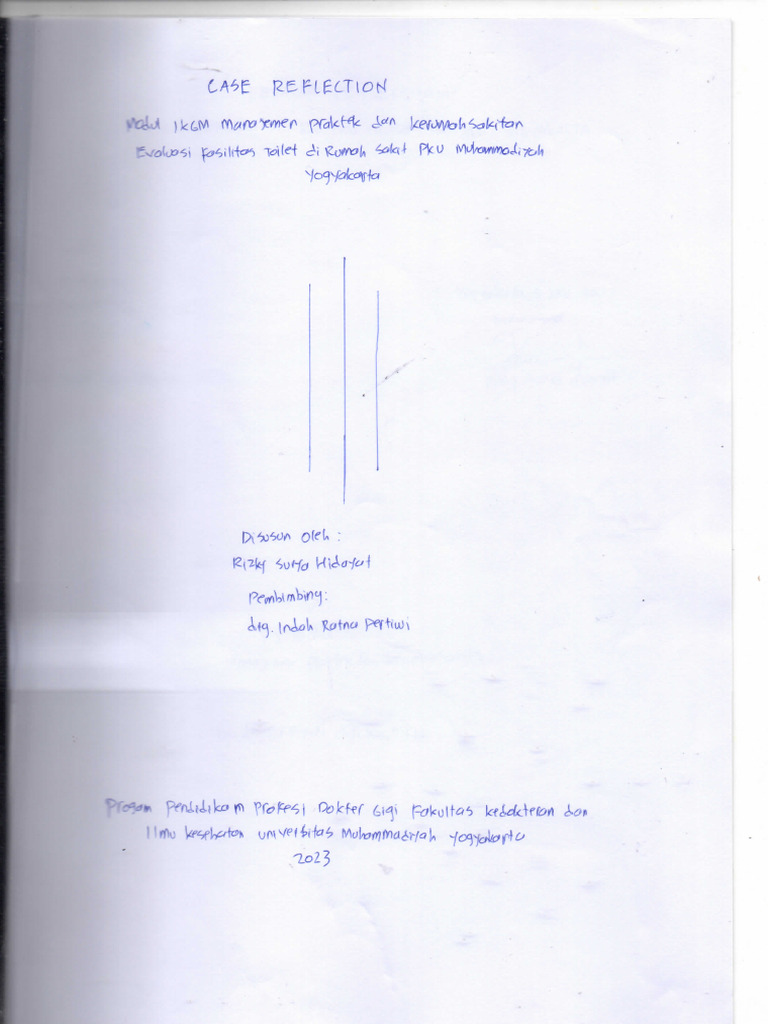 CASE REFLECTION
Modul IKGM Manajemen praktek dan kerumahsakitan
Evaluasi Fasilitas Toilet di Rumah Sakit PKU Muhammadiyah
Yogyakarta
Disusun oleh :
Rizky Surya Hidayat
Pembimbing:
drg. Indah Ratna Pertiwi
Progam Pendidikam Profesi Dokter Gigi Fakultas kedokteran dan
Ilmu kesehatan universitas Muhammadiyah Yogyakarta
2023